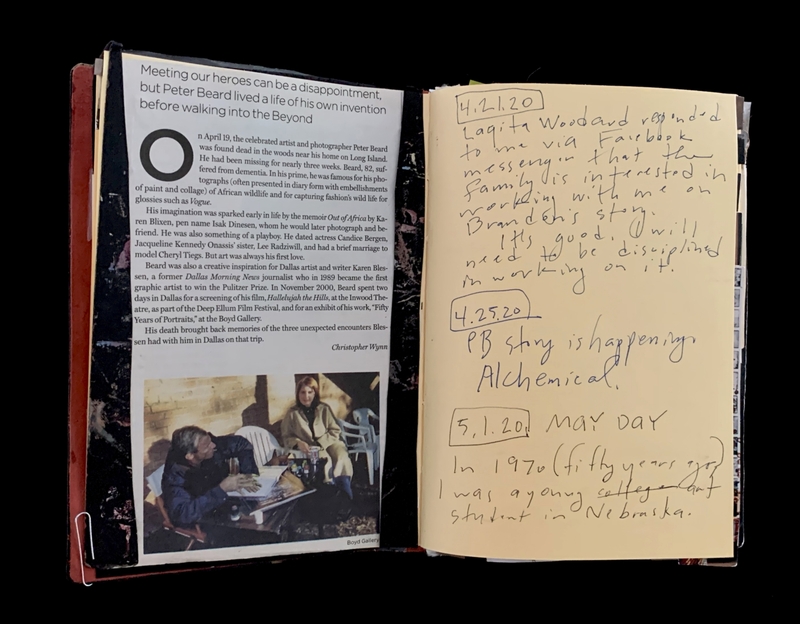 Meeting our heroes can be a disappointment,
but Peter Beard lived a life of his own invention
before walking into the Beyond
On April 19, the celebrated artist and photographer Peter Beard
was found dead in the woods near his home on Long Island.
He had been missing for nearly three weeks. Beard, 82, suf-
fered from dementia. In his prime, he was famous for his pho-
tographs (often presented in diary form with embellishments
of paint and collage) of African wildlife and for capturing fashion's wild life for
glossies such as Vogue.
His imagination was sparked early in life by the memoir Out of Africa by Ka-
ren Blixen, pen name Isak Dinesen, whom he would later photograph and be-
friend. He was also something of a playboy. He dated actress Candice Bergen,
Jacqueline Kennedy Onassis' sister, Lee Radziwill, and had a brief marriage to
model Cheryl Tiegs. But art was always his first love.
Beard was also a creative inspiration for Dallas artist and writer Karen Bles-
sen, a former Dallas Morning News journalist who in 1989 became the first
graphic artist to win the Pulitzer Prize. In November 2000, Beard spent two
days in Dallas for a screening of his film, Hallelujah the Hills, at the Inwood The-
atre, as part of the Deep Ellum Film Festival, and for an exhibit of his work, "Fifty
Years of Portraits," at the Boyd Gallery.
His death brought back memories of the three unexpected encounters Bles-
sen had with him in Dallas on that trip.
Christopher Wynn
Boyd Gallery
4.21.20
Laqita Woodard responded
to me via Facebook
messenger that the
family is interested in
working with me on
Brandon's story.
It's good. I will
need to be disciplined
in working on it.
4.25.20
PB story is happening.
Alchemical.
5.1.20 MAY DAY
In 1970 (fifty years ago)
I was a young college art
student in Nebraska.